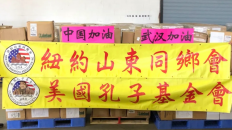 中国加油
武汉加油
紐約山東同鄉會
美國孔子基金會